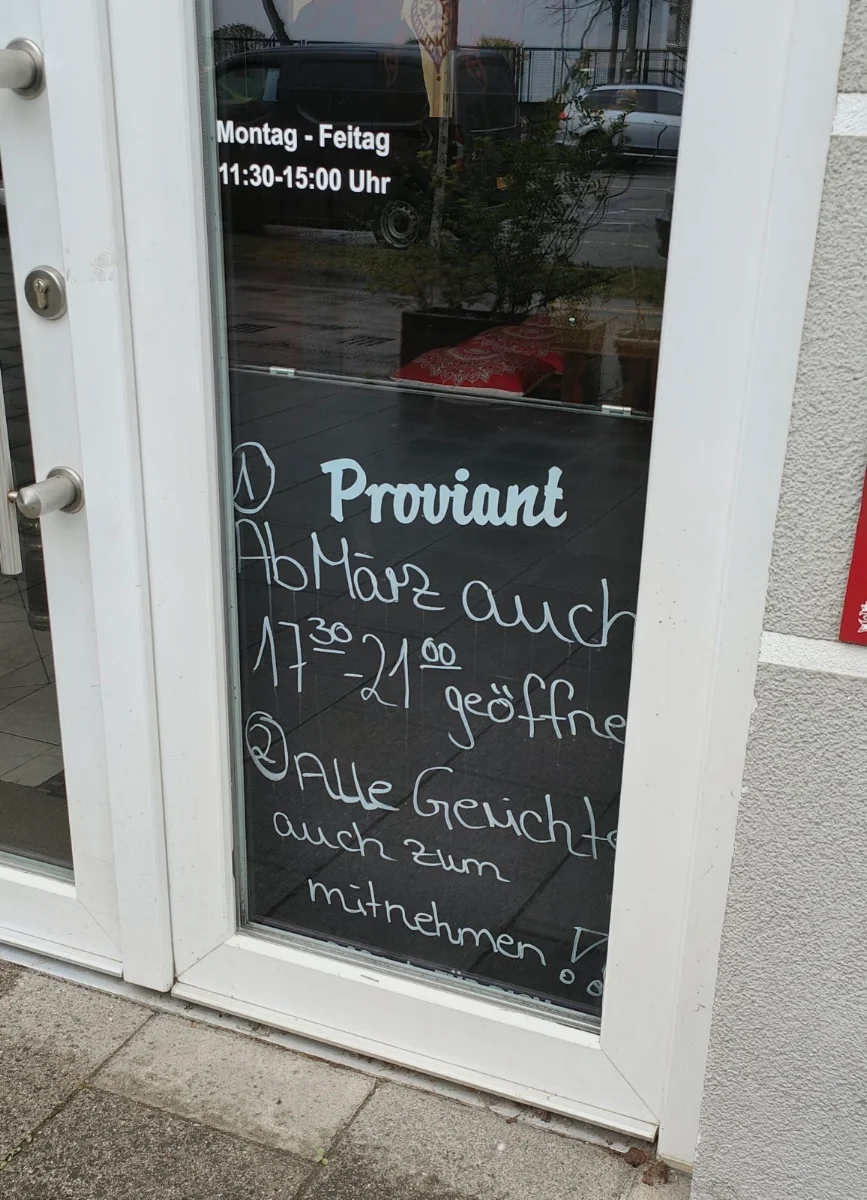 Montag - Feitag
11:30-15:00 Uhr
① Proviant
Ab März auch
17³⁰-21⁰⁰ geöffne
② Alle Gerichte
auch zum
mitnehmen !!